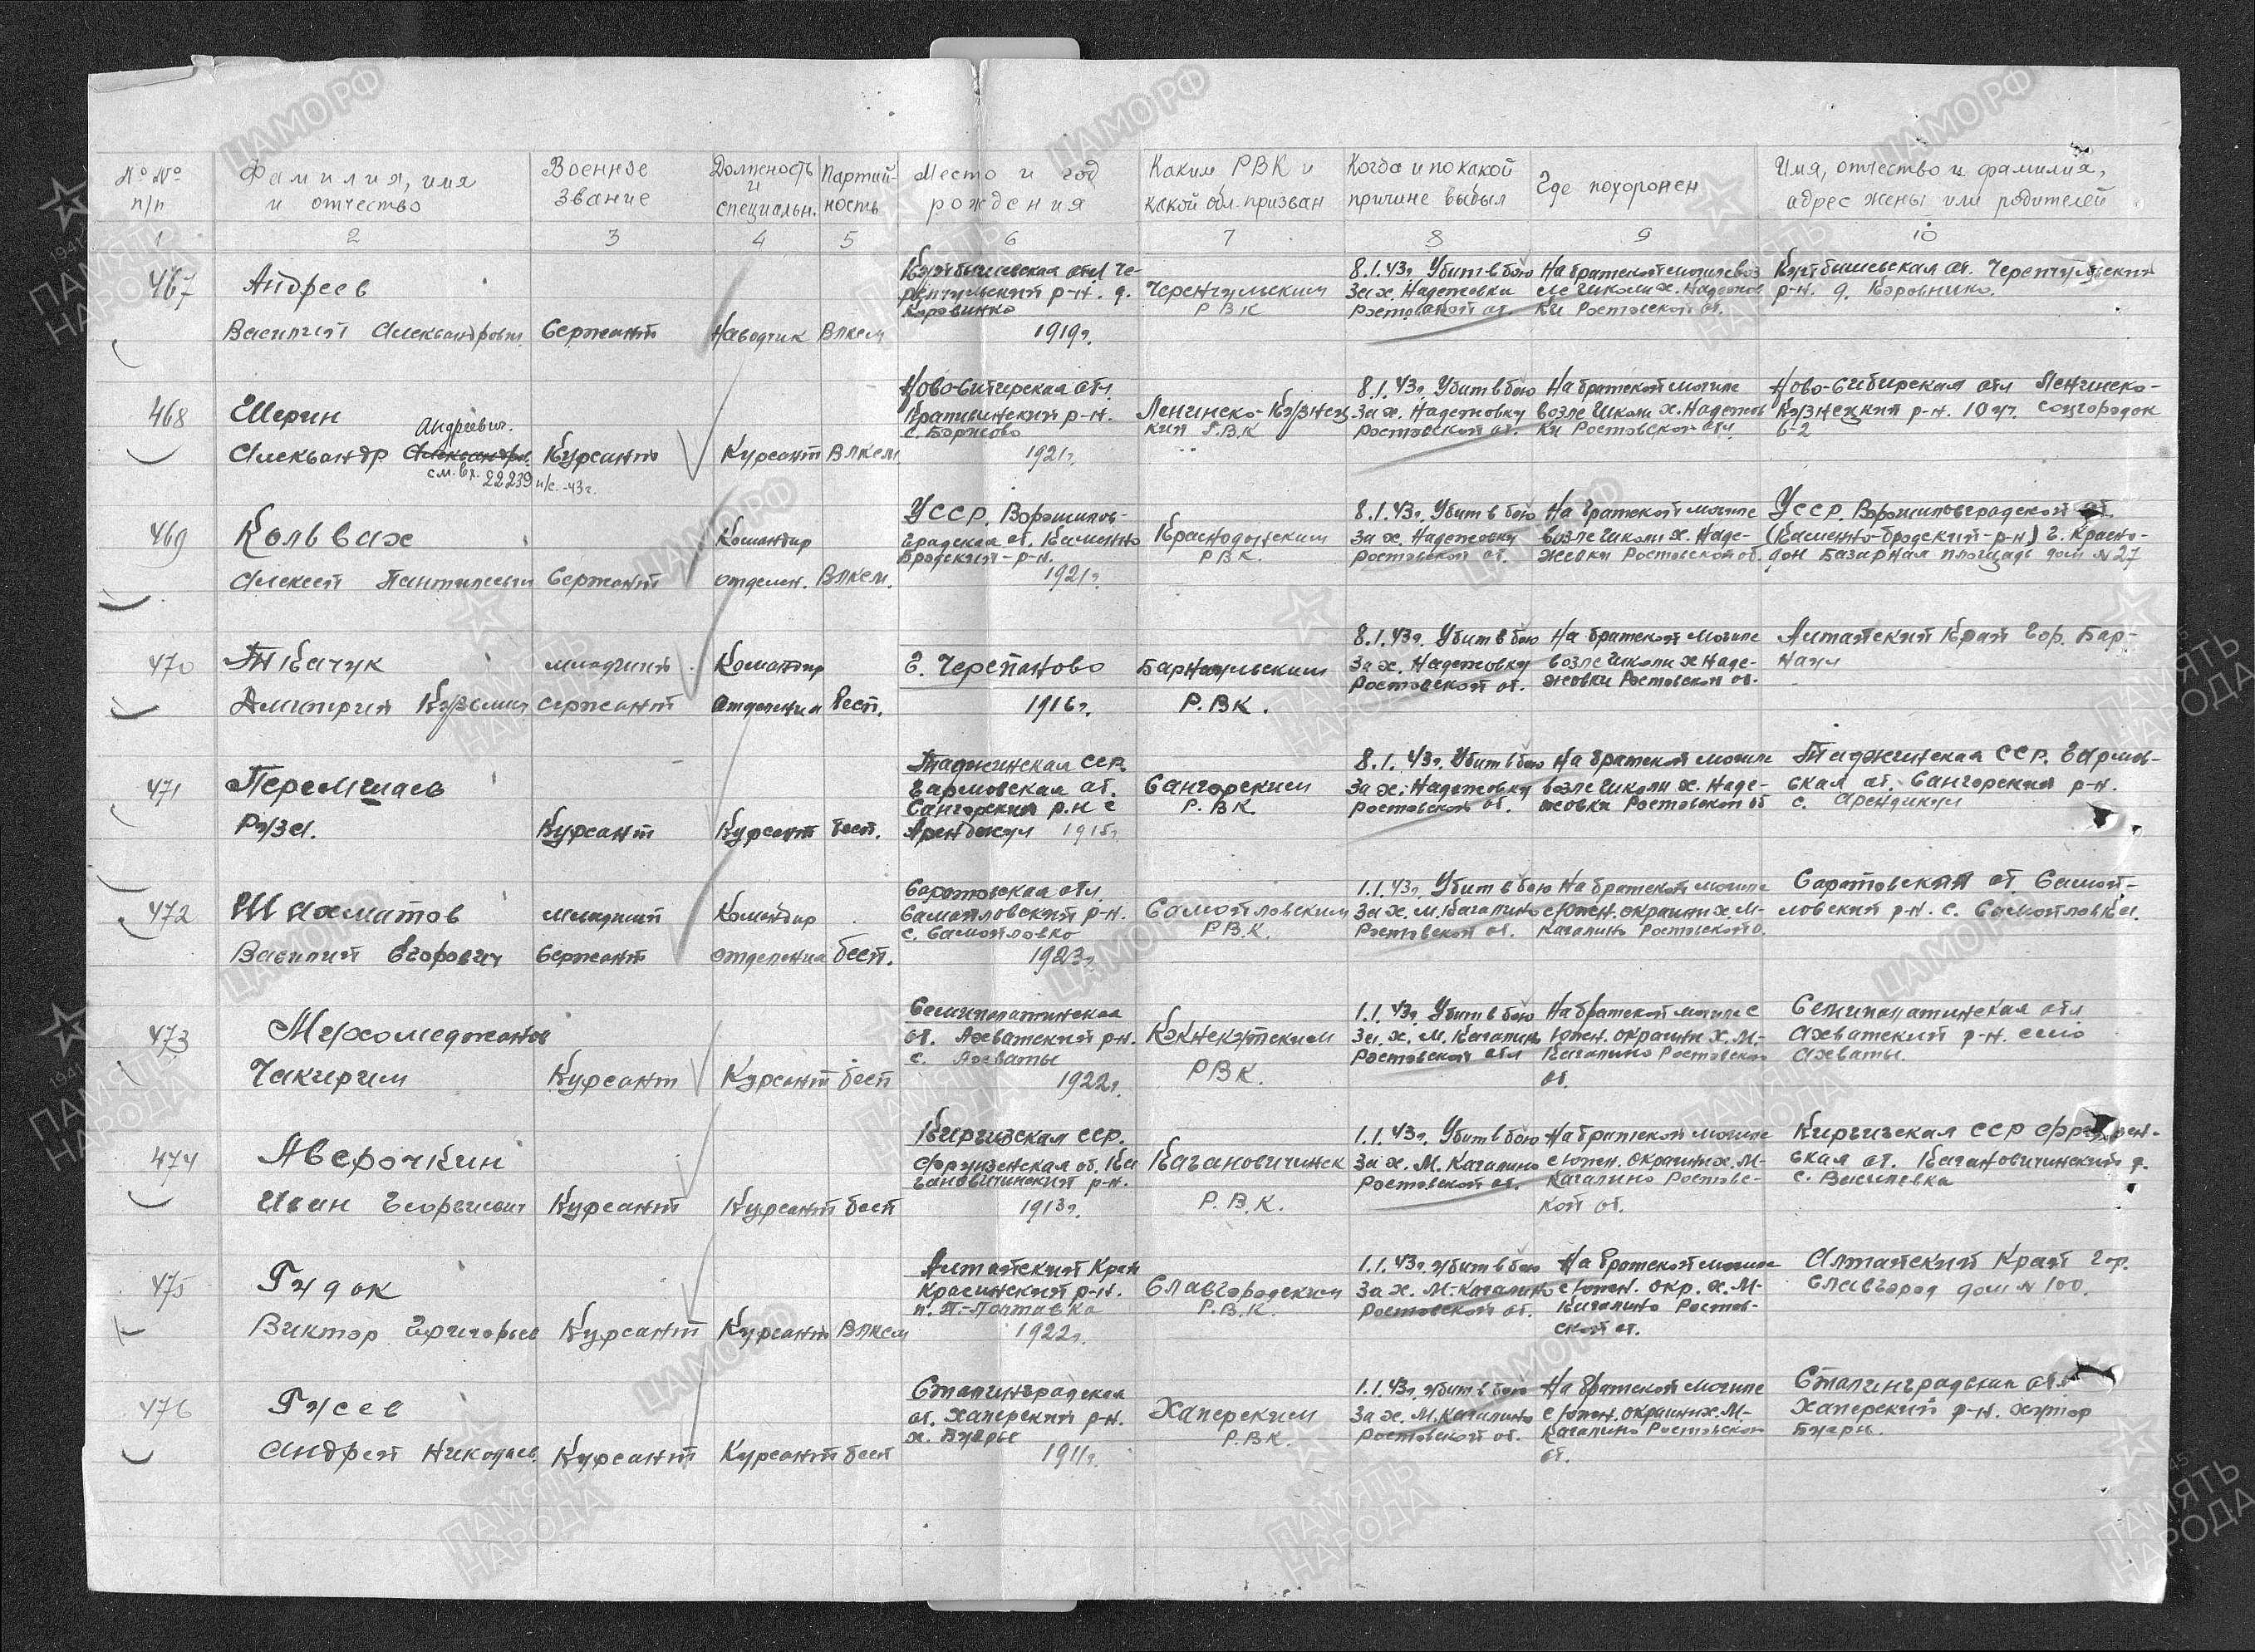 № №
п/п
Фамилия, имя
и отчество
Военное
звание
Должность
и
специальн.
Партий-
ность
Место и год
рождения
Каким РВК и
какой обл. призван
Когда и по какой
причине выбыл
Где похоронен
Имя, отчество и фамилия,
адрес жены или родителей
1 2 3 4 5 6 7 8 9 10
467
Андреев
Василий Александрович
Сержант
Наводчик
Влксм
Куйбышевская обл. Че-
рд.
1919г.
РВК
8.1.43г. Убит в бою
за х. Надежовки
Ростовской об.
На братской могиле воз
ле школи х. Надежов
ки Ростовской об.
Куйбышевская об.
р-н. д.
468
Шерин
Андреевич.
Александр
см. вх. 22239 н/с.-43г.
Курсант
Курсант
Влксм
Ново-Сибирская обл.
с.
1921г.
Ленинско-Кузнец
кий Р.В.К
8.1.43г. Убит в бою
за х. Надежовку
Ростовской об.
На братской могиле
возле школи х. Надежов
ки Ростовской обл.
Ново-Сибирская обл Ленинско-
Кузнецкий р-н. 10 уч. соцгородок
6-2
469
Кольвах
Алексей
Сержант
Командир
отделен.
Влксм.
УССР. Ворошилов-
градская об. Каменно
Бродский-р-н.
1921г.
Краснодонским
РВК.
8.1.43г. Убит в бою
за х. Надежовку
Ростовской об.
На братской могиле
возле школи х. Наде-
жовки Ростовской об.
УССР. Ворошиловградской об.
(Каменно-бродский-р-н) г. Красно-
дон Базарная площадь дом №27
470
Ткачук
Дмитрий Кузьмич
младший
сержант
Командир
отделения
Бесп.
г. Черепаново
1916г.
Барнаульским
Р.ВК.
8.1.43г. Убит в бою
за х. Надежовку
Ростовской об.
На братской могиле
возле школи х Наде-
жовки Ростовской об.
Алтайский Край гор. Бар-
наул
471
Перемшаев
Рузи.
Курсант
Курсант
Бесп.
Таджикская ССР.
Гармовская об.
Сангорский р.н с
1915г.
Сангорским
Р.ВК.
8.1.43г. Убит в бою
за х. Надежовку
Ростовской об.
На братской могиле
возле школи х. Наде-
жовки Ростовской об
Таджикская ССР. Гармов-
ская об. Сангорский р-н.
с.
472
Шахматов
Василий Егорович
младший
Сержант
Командир
отделения
бесп.
Саратовская обл.
Самойловский р-н.
с. Самойловко
1923г.
Самойловским
РВК.
1.1.43г. Убит в бою
за х. М.Кагалино
Ростовской об.
На братской могиле
с южн. окраини х. М-
Кагалино Ростовской о.
Саратовской об. Самой-
ловский р-н. с. Самойловка.
473
Мухомеджанов
Чакирим
Курсант
Курсант
бесп
Семипалатинская
об. р-н.
с.
1922г.
РВК.
1.1.43г. Убит в бою
за х. М. Кагалин
Ростовской обл
На братской могиле с
южн. окраини х. М.-
Кагалино Ростовской
об.
Семипалатинская обл
р-н. село
474
Аверочкин
Иван Георгиевич
Курсант
Курсант
бесп
Киргизская ССР.
Фрунзенская об. Ка
гановичинский р-н.
1913г.
Кагановичинск
Р.В.К.
1.1.43г. Убит в бою
за х. М. Кагалино
Ростовской об.
На братской могиле
с южн. окраини х. М-
Кагалино Ростовс-
кой об.
Киргизская ССР Фрунзен-
ская об. Кагановичинский р.
с. Василевка
475
Гудок
Виктор Григорьев
Курсант
Курсант
Влксм
Алтайский Край
р-н.
п. Полтавка
1922г.
Славгородским
Р.В.К.
1.1.43г. убит в бою
за х. М-Кагалино
Ростовской об.
На братской могиле
с южн. окр. х. М-
Кагалино Ростов-
ской об.
Алтайский Край гор.
Славгород дом № 100.
476
Гусев
Андрей Николаев.
Курсант
Курсант
бесп
Сталинградская
об. Хаперский р-н.
х.
1911г.
Хаперским
Р.ВК.
1.1.43г. убит в бою
за х. М.Кагалино
Ростовской об.
На братской могиле
с южн. окраини х. М.-
Кагалино Ростовской
об.
Сталинградская обл.
Хаперский р-н. хутор
ЦАМО РФ
ПАМЯТЬ
НАРОДА